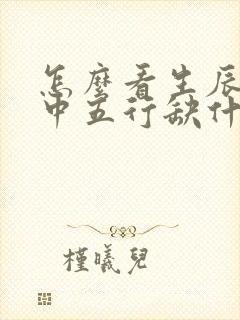 怎麼看生辰
中五行缺什
槿曦兒